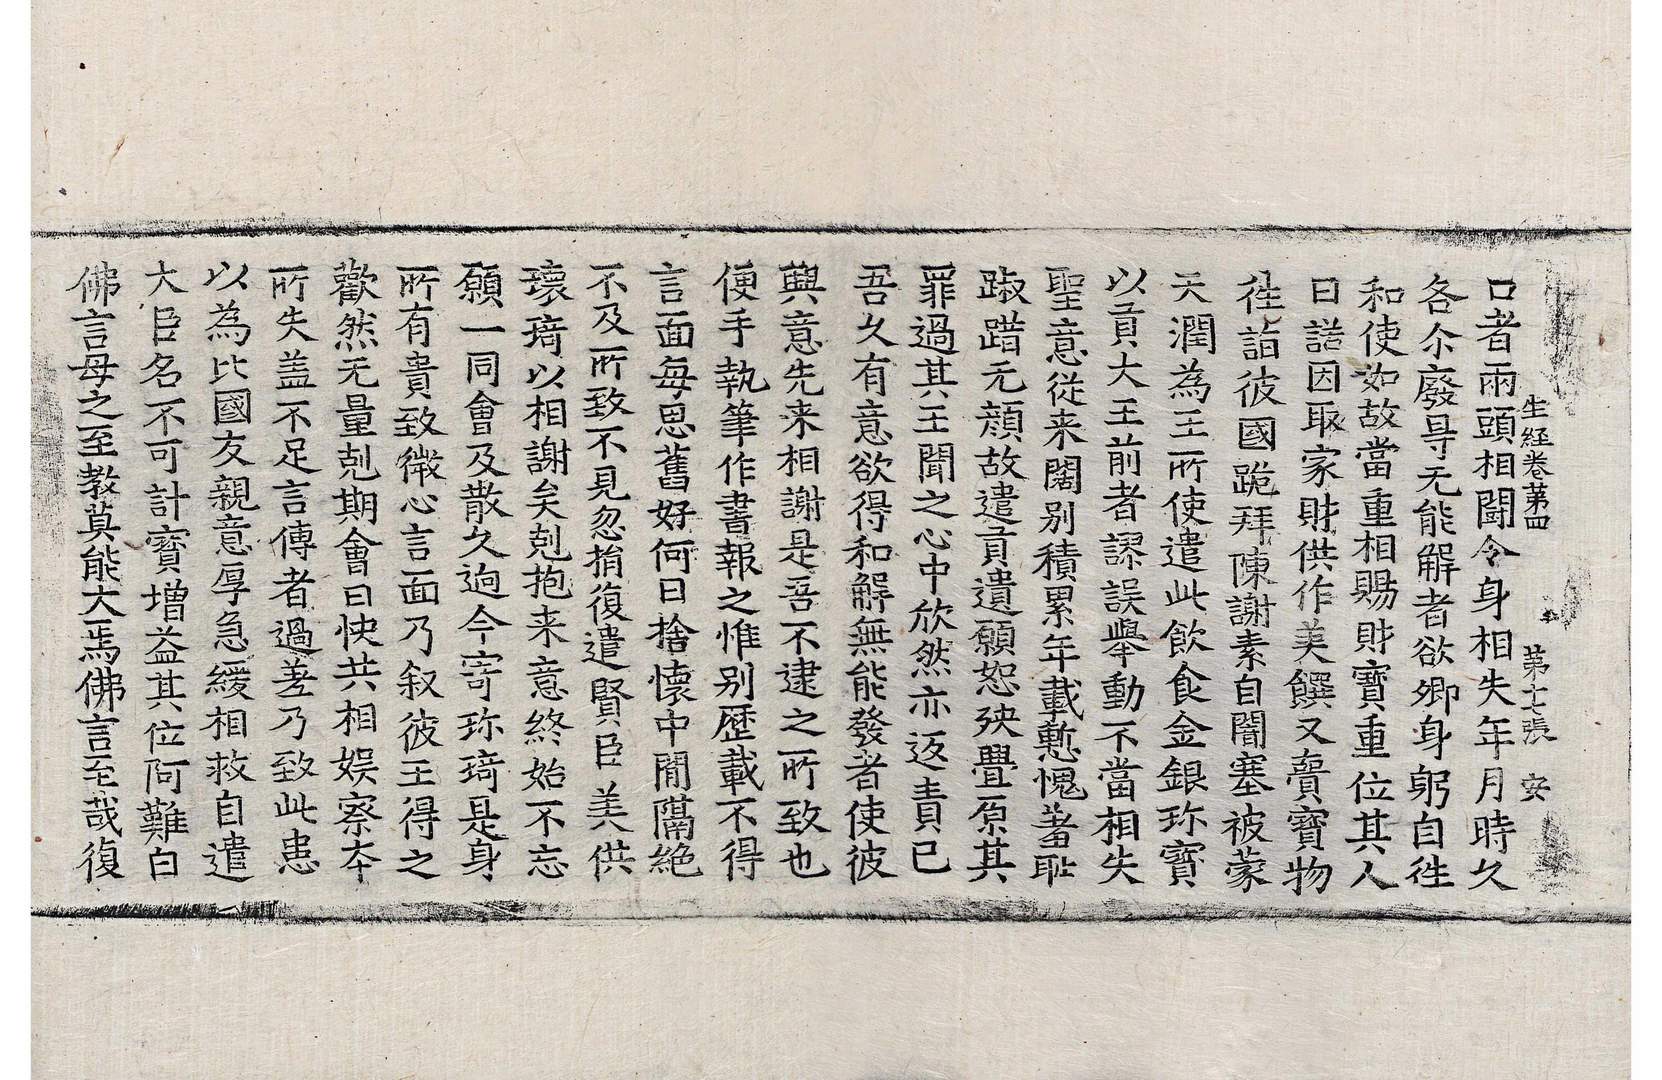 生經卷第四 第七張 安
口者兩頭相鬪令身相失年月時久
各尒廢㝵无能解者欲卿身躬自徃
和使如故當重相賜財寶重位其人
曰諾因取家財供作美饌又賷寶物
徃詣彼國跪拜陳謝素自闇塞被蒙
天潤為王所使遣此飲食金銀珎寶
以貢大王前者謬誤舉動不當相失
聖意従来闊別積累年載慙愧羞恥
踧踖无顔故遣貢遺願恕殃舋原其
罪過其王聞之心中欣然亦返責已
吾久有意欲得和解無能發者使彼
興意先来相謝是吾不逮之所致也
便手執筆作書報之惟別歷載不得
言面每思舊好何日捨懷中間隔絶
不及所致不見忽捐復遣賢臣美供
瓌琦以相謝矣剋抱来意終始不忘
願一同會及散久逈今寄珎琦是身
所有貴致微心言面乃叙彼王得之
歡然无量剋期會日快共相娛察夲
所失盖不足言傳者過差乃致此患
以為比國友親意厚急緩相救自遣
大臣名不可計寳增益其位阿難白
佛言母之至教莫能大焉佛言至哉復